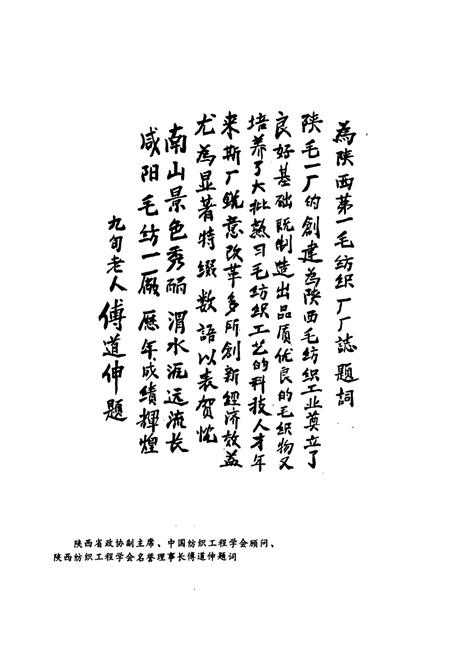 為陕西第一毛纺织厂厂誌题詞
陕毛一厂的創建為陕西毛纺织工业奠立了
良好基础既制造出品质优良的毛织物又
培养了大批熟习毛纺织工艺的科技人才年
来斯厂锐意改革多所創新經济效益
尤為显著特缀数語以表贺忱
南山景色秀丽 渭水泥远流长
咸阳毛纺一厰 歷年成绩輝煌
九旬老人 傅道伸题
陕西省政协副主席、中国纺织工程学会顾问、
陕西纺织工程学会名誉理事长傅道伸题词